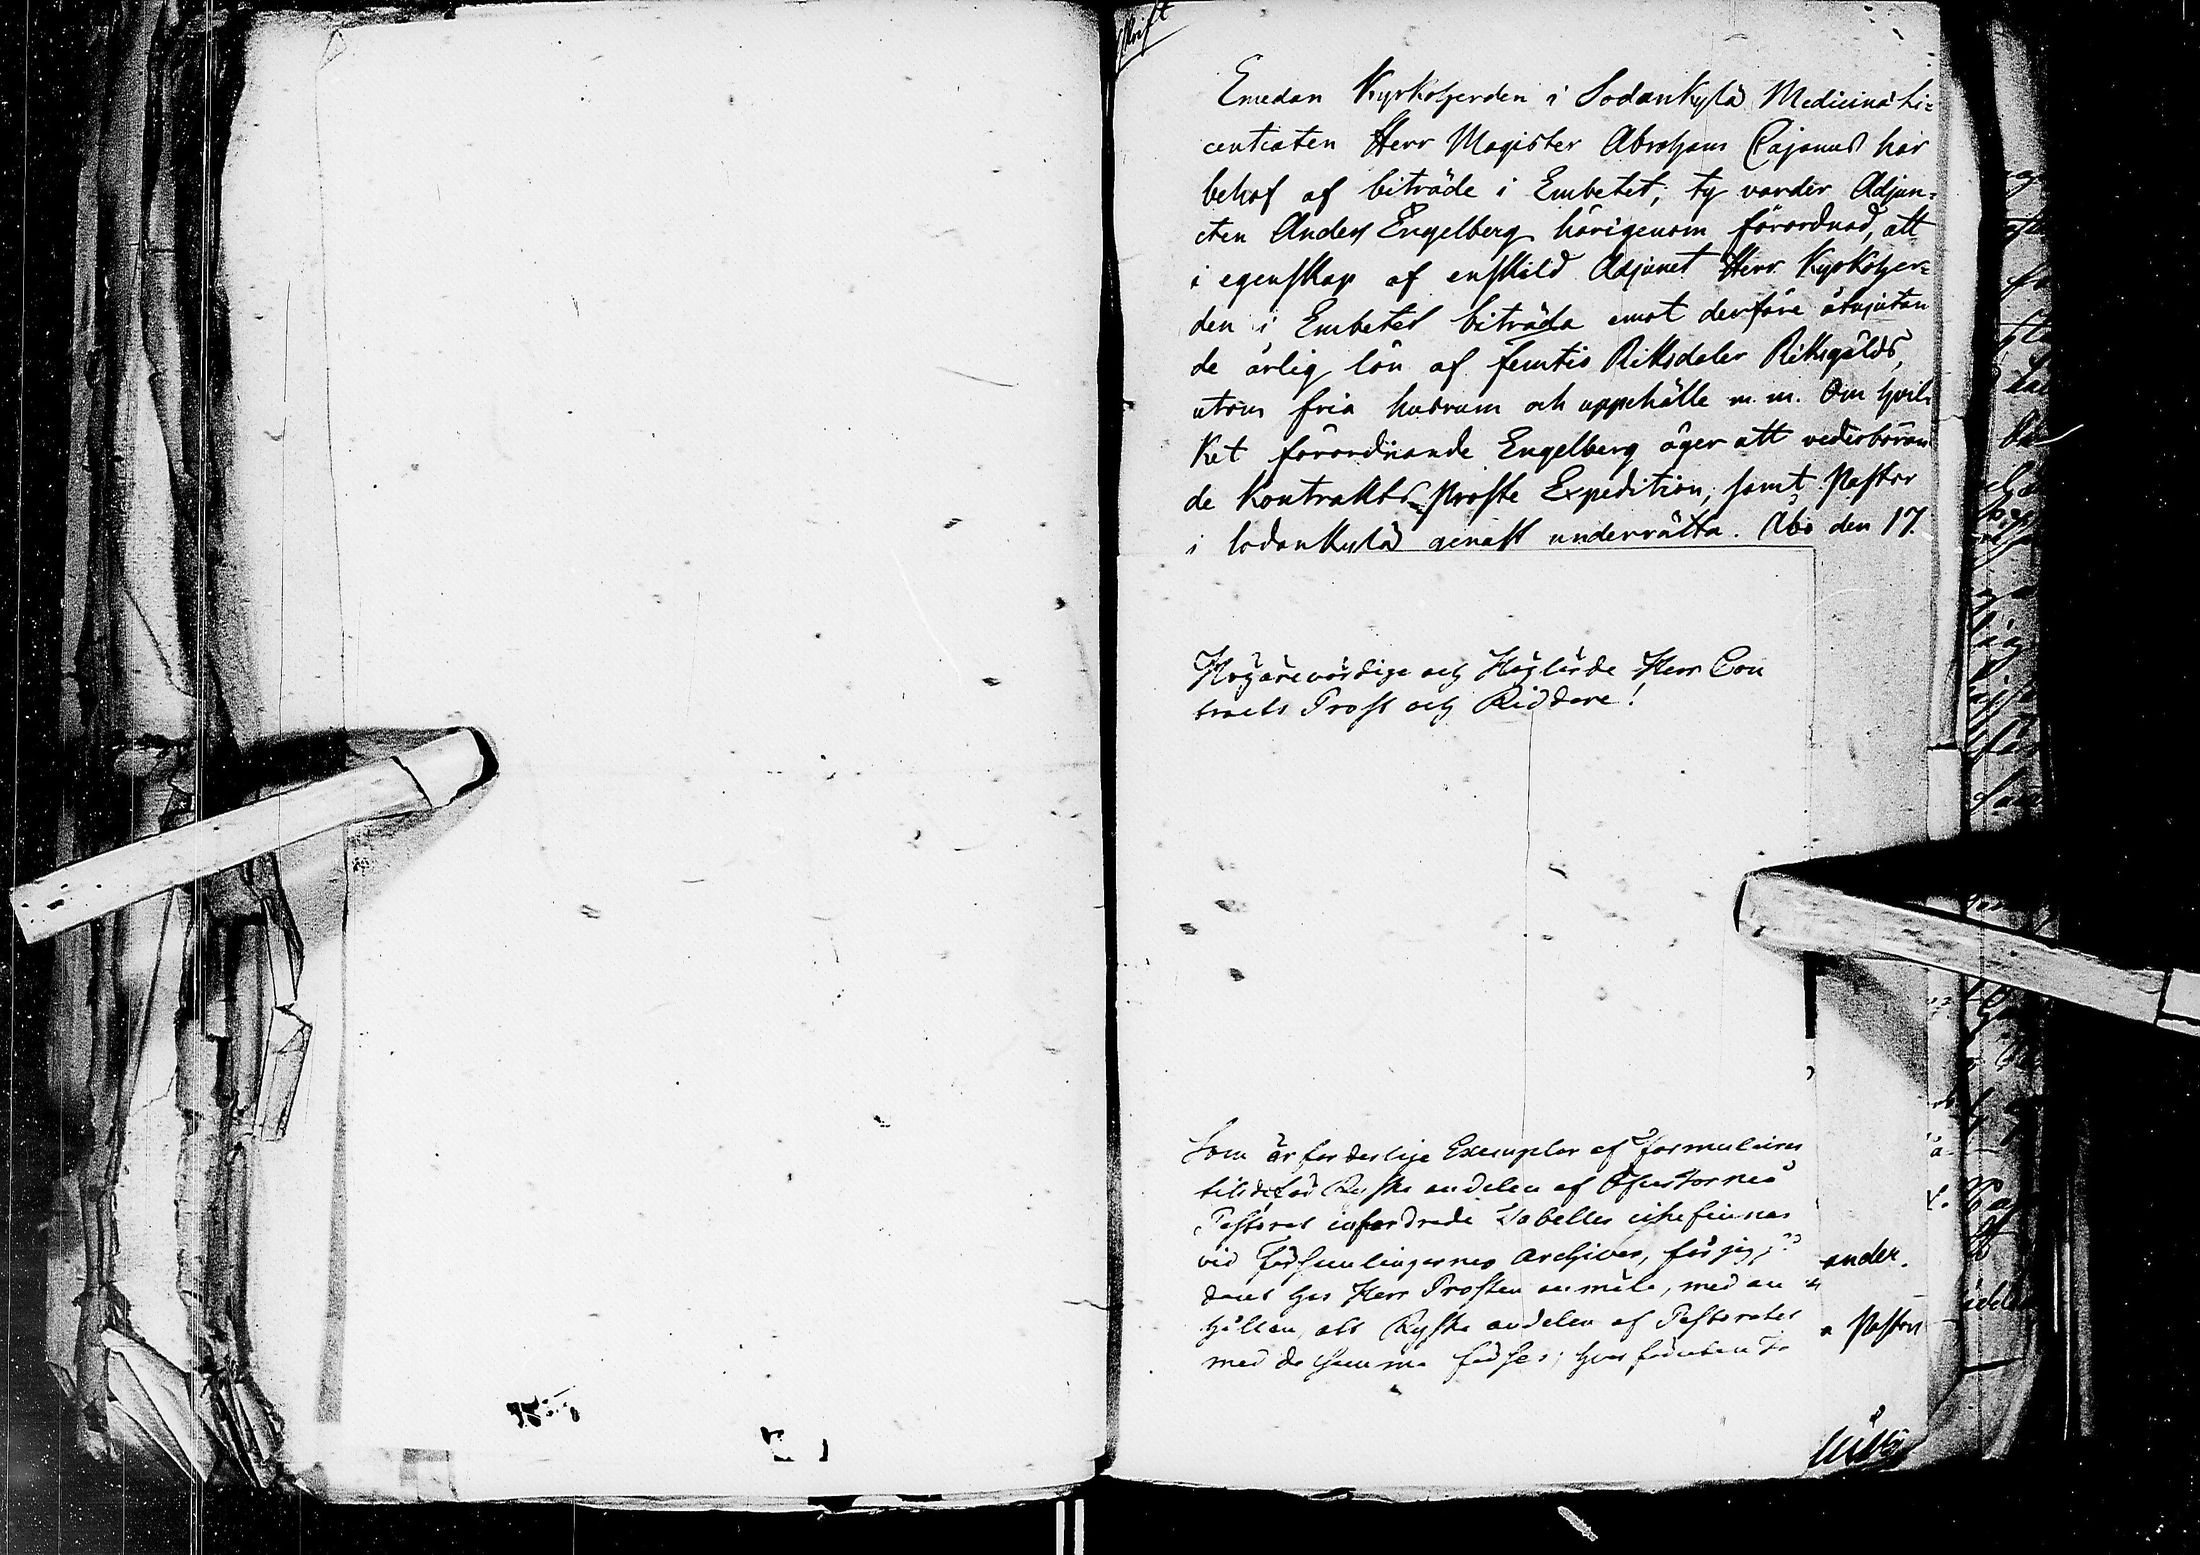 Emedan Kyrkoherden i Sodankylä Medicinæ Li=
centiaten Herr Magister Abraham Cajanus har
behof af biträde i Embetet; ty varder Adjun=
cten Anders Engelberg härigenom förordnad, att
i egenskap af enskild Adjunct Herr Kyrkoher=
den i Embetet biträda emot derföre åtnjutan
de årlig lön af femtio Riksdaler Riksgälds,
utom fria husrum och uppehälle m.m. Om hvil=
ket förordnande Engelberg äger att vederböran
de Kontrakts Prosts Expedition, samt Pastor
i Sodankylä genast underrätta. Åbo den 17.
Högärevördige och Höglärde Herr Con
tracts Prost och Riddare!
Som erforderlige Exemplar af Formulairer
Ryska andelen af Öfvertorneå
Pastorat infordrade Tabeller icke finnas
vid Församlingarnes Archiver, får jag
hos Herr Prosten anmäla, med an
hållan, att Ryska andelen af Pastoratet
med de samma förses; hvarförutan
ander.
Paston